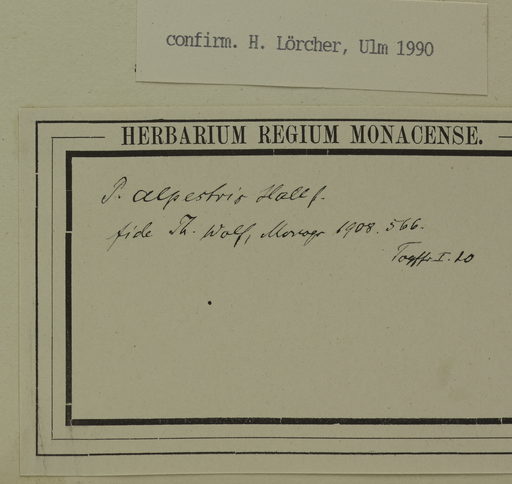 confirm. H. Lörcher, Ulm 1990
HERBARIUM REGIUM MONACENSE.
P. alpestris Hall f.
fide Th. Wolf, Monogr 1908. 566.
I. 20